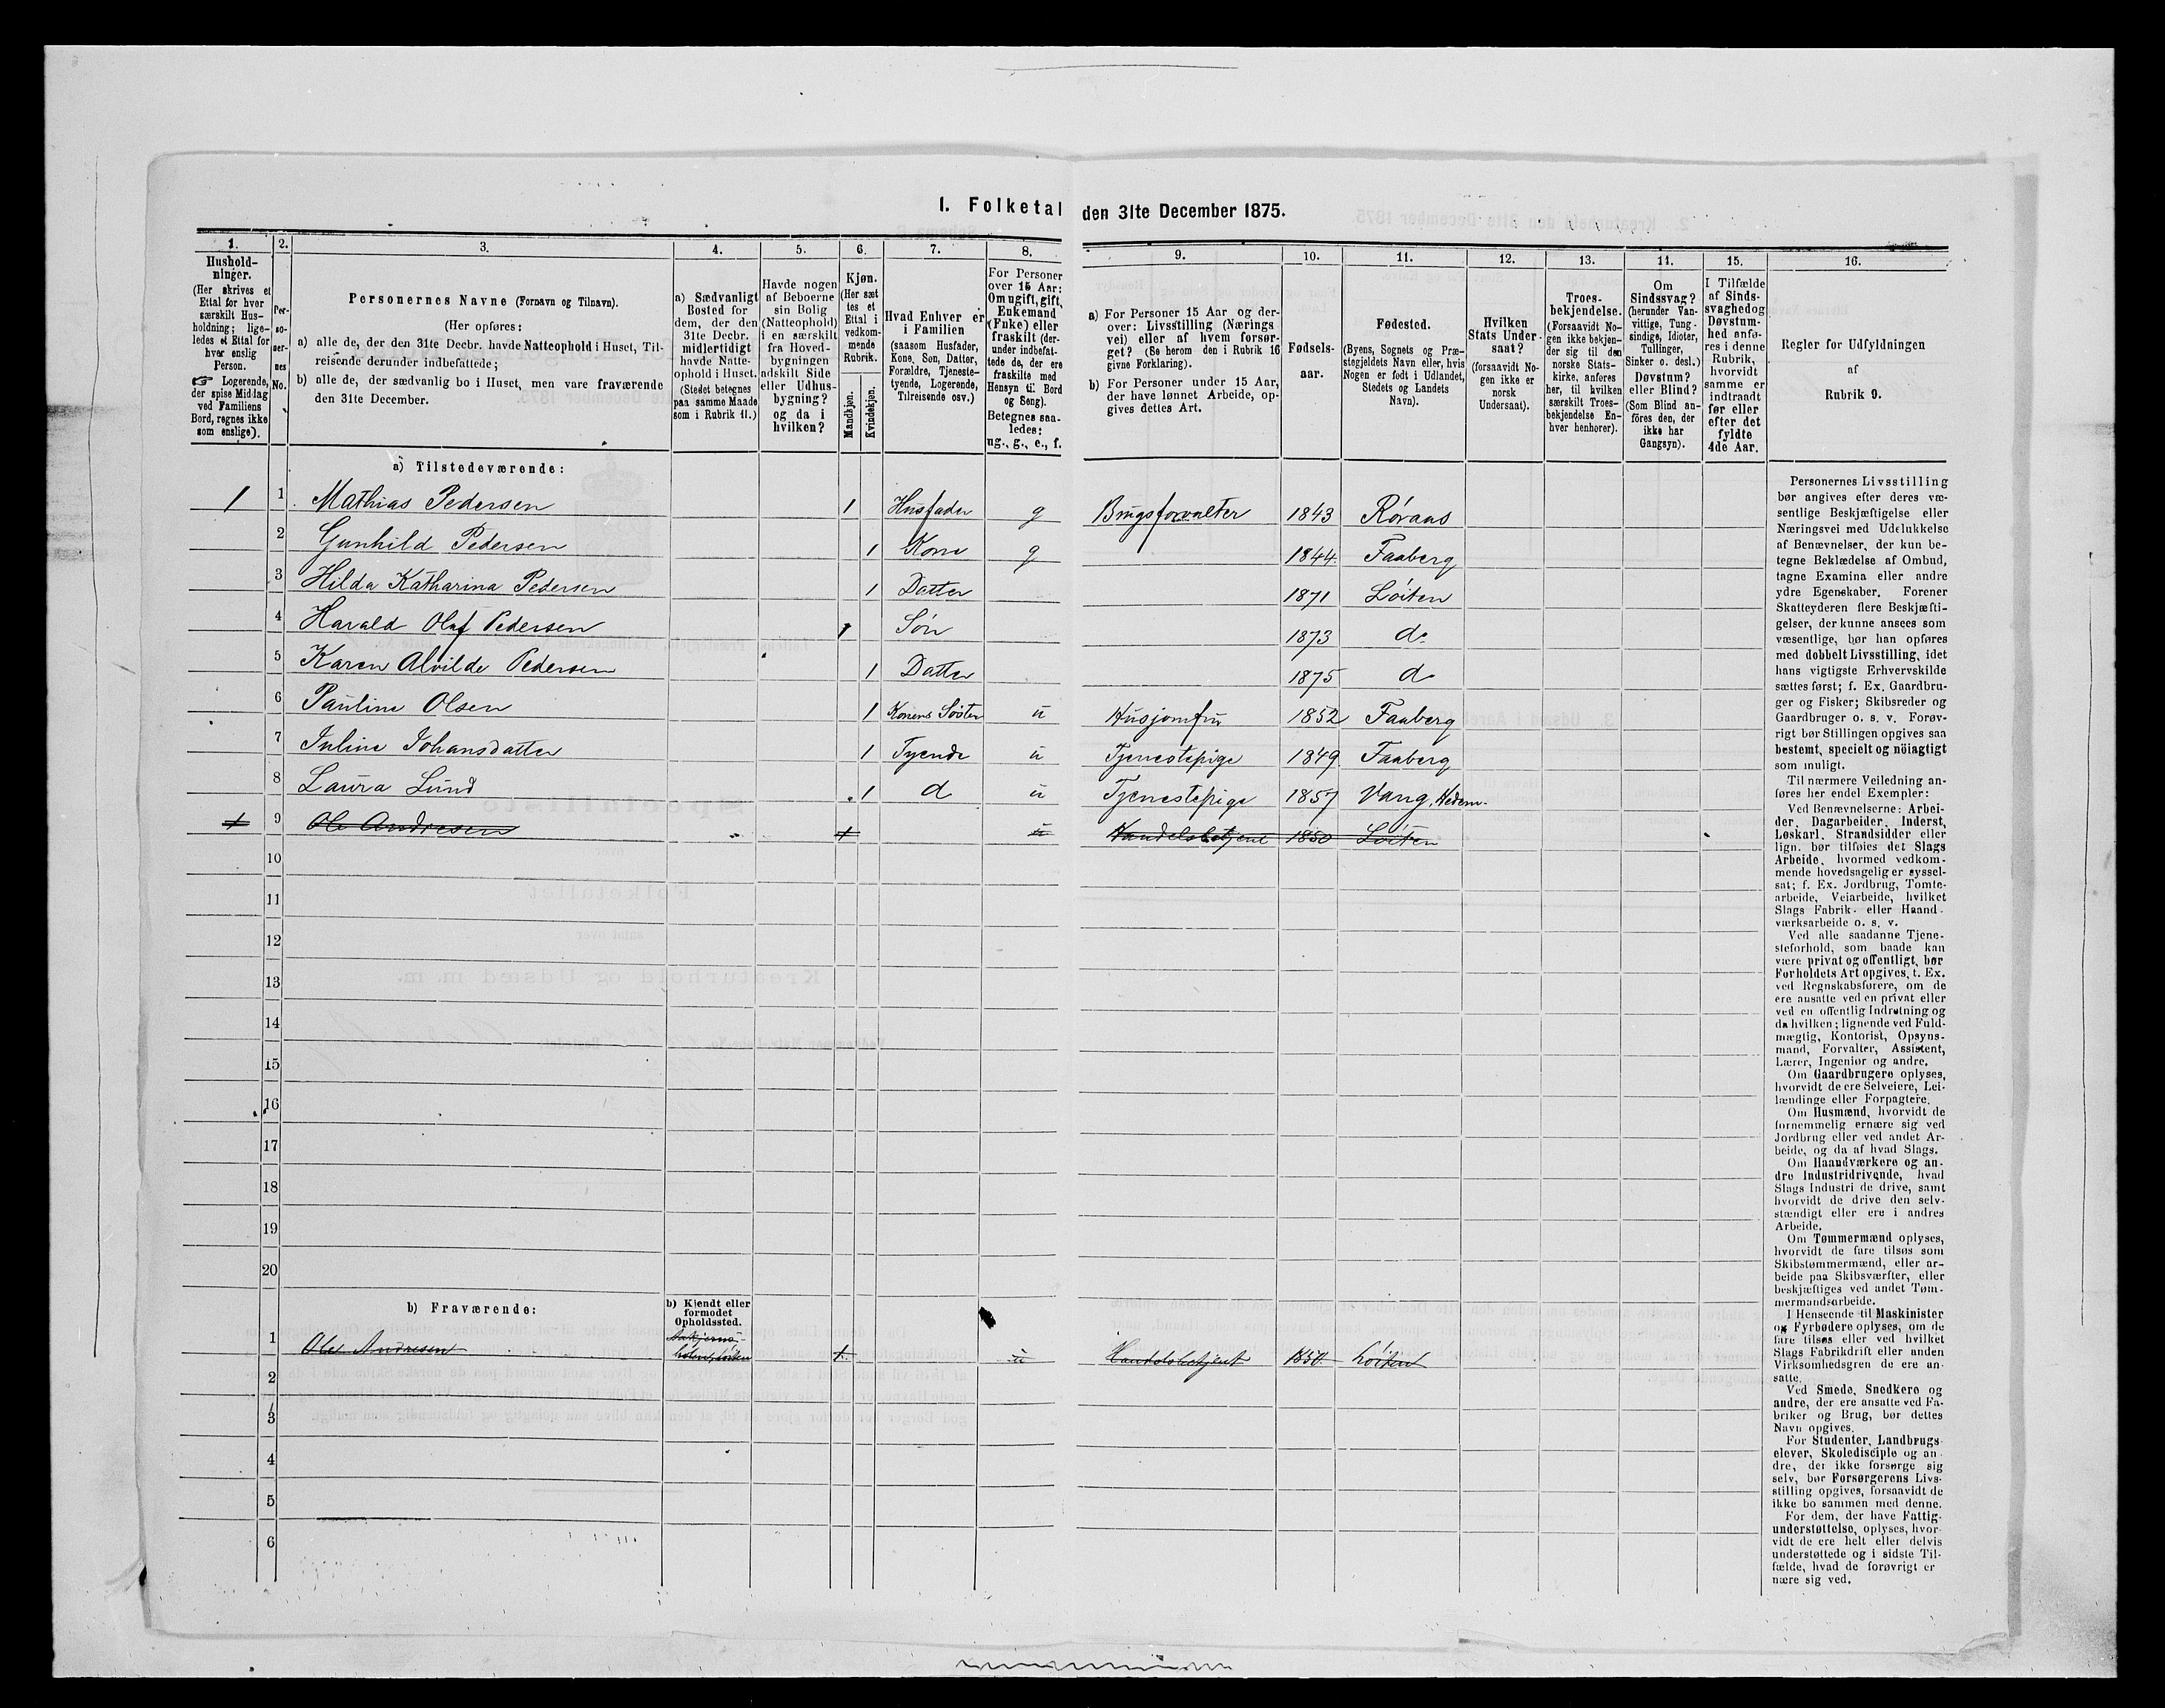 I. Folketal den 31te December 1875.
1. 2. 3. 4. 5. 6. 7. 8. 9. 10. 11. 12. 13. 11. 15. 16.
Hushold-
ninger.
(Her skrives et
Ettal for hver
særskilt Hus-
holdning; lige-
ledes et Ettal for
hver enslig
Person.
☞ Logerende,
der spise Middag
ved Familiens
Bord, regnes ikke
som enslige).
Per-
so-
ner-
nes
No.
Personernes Navne (Fornavn og Tilnavn).
(Her opføres:
a) alle de, der den 31te Decbr. havde Natteophold i Huset, Til-
reisende derunder indbefattede;
b) alle de, der sædvanlig bo i Huset, men vare fraværende
den 31te December.
a) Sædvanligt
Bosted for
dem, der den
31te Decbr.
midlertidigt
havde Natte-
ophold i Huset.
(Stedet betegnes
paa samme Maade
som i Rubrik 11.)
Havde nogen
af Beboerne
sin Bolig
(Natteophold)
i en særskilt
fra Hoved-
bygningen
adskilt Side
eller Udhus-
bygning?
og da i
hvilken?
Kjøn.
(Her sæt
tes et
Ettal i
vedkom-
mende
Rubrik.
Mandkjøn.
Kvindekjøn.
Hvad Enhver er
i Familien
(saasom Husfader,
Kone, Søn, Datter,
Forældre, Tjeneste-
tyende, Logerende,
Tilreisende osv.)
For Personer
over 15 Aar:
Om ugift, gift,
Enkemand
(Enke) eller
fraskilt (der-
under indbefat-
tede de, der ere
fraskilte med
Hensyn til Bord
og Seng).
Betegnes saa-
ledes:
ug., g., e., f.
a) For Personer 15 Aar og der-
over: Livsstilling (Nærings
vei) eller af hvem forsør-
get? (Se herom den i Rubrik 16
givne Forklaring).
b) For Personer under 15 Aar,
der have lønnet Arbeide, op-
gives dettes Art.
Fødsels-
aar.
Fødested.
(Byens, Sognets og Præ-
stegjeldets Navn eller, hvis
Nogen er født i Udlandet,
Stedets og Landets
Navn).
Hvilken
Stats Under-
saat?
(forsaavidt No-
gen ikke er
norsk
Undersaat).
Troes-
bekjendelse.
(Forsaavidt No-
gen ikke bekjen-
der sig til den
norske Stats-
kirke, anføres
her, til hvilken
særskilt Troes-
bekjendelse En-
hver henhører).
Om
Sindssvag?
(herunder Van-
vittige, Tung-
sindige, Idioter,
Tullinger,
Sinker o. desl.)
Døvstum?
eller Blind?
(Som Blind an-
føres den, der
ikke har
Gangsyn).
I Tilfælde
af Sinds-
svaghed og
Døvstum-
hed anfø-
res i denne
Rubrik,
hvorvidt
samme er
indtraadt
før eller
efter det
fyldte
4de Aar.
Regler for Udfyldningen
af
Rubrik 9.
a) Tilstedeværende:
1 1 Mathias Pedersen 1 Husfader g Brugsforvalter 1843 Røraas
2 Gunhild Pedersen 1 Kone g 1844. Faaberg
3 Hilda Katharina Pedersen 1 Datter 1871 Løiten
4 Harald Olaf Pedersen 1 Søn 1873 do
5 Karen Alvilde Pedersen 1 Datter 1875 do
6 Pauline Olsen 1 Konens Søster u Husjomfru 1852 Faaberg
7 Juline Johansdatter 1 Tyende u Tjenestepige 1849 Faaberg
8 Laura Lund 1 d u Tjenestepige 1857 Vang, Hedem.
1 9 Ole Andresen 1 u Handelsbetjent 1850 Løiten
10
11
12
13
14
15
16
17
18
19
20
b) Fraværende:
b) Kjendt eller
formodet
Opholdssted.
1 Ole Andresen 1 u Handelsbetjent 1850. Løiten
2
3
4
5
6
Personernes Livsstilling
bør angives efter deres væ-
sentlige Beskjæftigelse eller
Næringsvei med Udelukkelse
af Benævnelser, der kun be-
tegne Beklædelse af Ombud,
tagne Examina eller andre
ydre Egenskaber. Forener
Skatteyderen flere Beskjæfti-
gelser, der kunne ansees som
væsentlige, bør han opføres
med dobbelt Livsstilling, idet
hans vigtigste Erhvervskilde
sættes først; f. Ex. Gaardbru-
ger og Fisker; Skibsreder og
Gaardbruger o. s. v. Forøv-
rigt bør Stillingen opgives saa
bestemt, specielt og nöiagtigt
som muligt.
Til nærmere Veiledning an-
føres her endel Exempler:
Ved Benævnelserne: Arbei-
der, Dagarbeider, Inderst,
Løskarl, Strandsidder eller
lign. bør tilføies det Slags
Arbeide, hvormed vedkom-
mende hovedsagelig er syssel-
sat; f. Ex. Jordbrug, Tomte-
arbeide, Veiarbeide, hvilket
Slags Fabrik- eller Haand-
værksarbeide o. s. v.
Ved alle saadanne Tjene-
steforhold, som baade kan
være privat og offentligt, bør
Forholdets Art opgives, t. Ex.
ved Regnskabsførere, om de
ere ansatte ved en privat eller
ved en offentlig Indretning og
da hvilken; lignende ved Fuld-
mægtig, Kontorist, Opsyns-
mand, Forvalter, Assistent,
Lærer, Ingeniør og andre.
Om Gaardbrugere oplyses,
hvorvidt de ere Selveiere, Lei-
lændinge eller Forpagtere.
Om Husmænd, hvorvidt de
fornemmelig ernære sig ved
Jordbrug eller ved andet Ar-
beide, og da af hvad Slags.
Om Haandværkere og an-
dre Industridrivende, hvad
Slags Industri de drive, samt
hvorvidt de drive den selv-
stændigt eller ere i andres
Arbeide.
Om Tømmermænd oplyses,
hvorvidt de fare tilsøs som
Skibstømmermænd, eller ar-
beide paa Skibsværfter, eller
beskjæftiges ved andet Tøm-
mermandsarbeide.
I Henseende til Maskinister
og Fyrbødere oplyses, om de
fare tilsøs eller ved hvilket
Slags Fabrikdrift eller anden
Virksomhedsgren de ere an-
satte.
Ved Smede, Snedkere og
andre, der ere ansatte ved Fa-
briker og Brug, bør dettes
Navn opgives.
For Studenter, Landbrugs
elever, Skoledisciple og an-
dre, der ikke forsørge sig
selv, bør Forsørgerens Livs-
stilling opgives, forsaavidt de
ikke bo sammen med denne.
For dem, der have Fattig-
understøttelse, oplyses, hvor-
vidt de ere helt eller delvis
understøttede og i sidste Til-
fælde, hvad de forøvrigt er
nære sig ved.